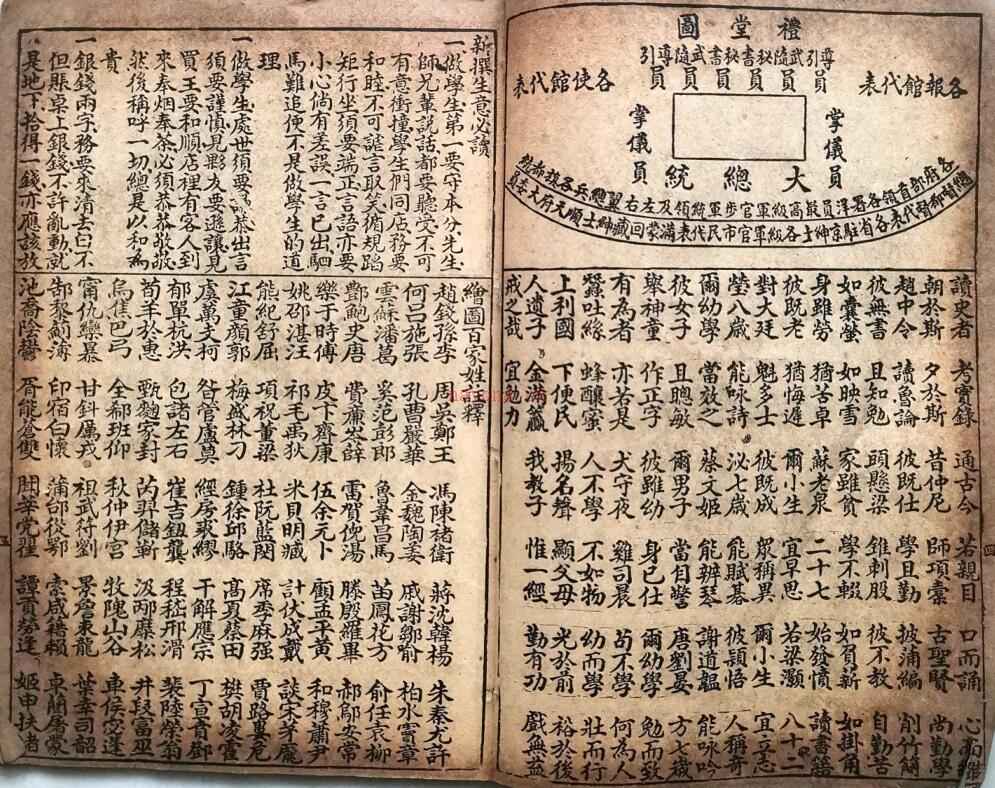 禮堂圖
引導員 武隨員 秘書員 秘書員 武隨員 引導員
各報館代表
各使館代表
掌儀員
掌儀員
大總統
各府部首領各署洋員最高級軍官步軍統領及左右翼總兵各旗都統
都督代表各省駐京紳士各級軍官市民代表滿蒙回藏紳士順天府大
讀史者 考實錄 通古今 若親目 口而誦 心而維
朝於斯 夕於斯 昔仲尼 師項橐 古聖賢 尚勤學
趙中令 讀魯論 彼既仕 學且勤 披蒲編 削竹簡
彼無書 且知勉 頭懸梁 錐刺股 彼不教 自勤苦
如囊螢 如映雪 家雖貧 學不輟 如負薪 如掛角
身雖勞 猶苦卓 蘇老泉 二十七 始發憤 讀書籍
彼既老 猶悔遲 爾小生 宜早思 若梁灝 八十二
對大廷 魁多士 彼既成 眾稱異 爾小生 宜立志
瑩八歲 能咏詩 泌七歲 能賦碁 彼穎悟 人稱奇
爾幼學 當效之 蔡文姬 能辨琴 謝道韞 能咏吟
彼女子 且聰敏 爾男子 當自警 唐劉晏 方七歲
舉神童 作正字 彼雖幼 身已仕 爾幼學 勉而致
有為者 亦若是 犬守夜 雞司晨 苟不學 何為人
蠶吐絲 蜂釀蜜 人不學 不如物 幼而學 壯而行
上利國 下便民 揚名聲 顯父母 光於前 裕於後
人遺子 金滿籯 我教子 惟一經 勤有功 戲無益
戒之哉 宜勉力
四
新撰生意必讀
一做學生第一要守本分先生
師兄輩說話都要聽受不可
有意衝撞學生們同店務要
和睦不可謊言取笑循規蹈
矩行坐須要端正言語亦要
小心倘有差誤一言已出駟
馬難追便不是做學生的道
理
一做學生處世須要恭出言
須要謹慎見夥友要遜讓見
買主要和順店裡有客人到
來奉烟奉茶必須恭恭敬敬
然後稱呼一切總是以和為
貴
一銀錢兩字務要來清去白不
但賬桌上銀錢不許亂動就
是地下拾得一錢亦應該放
繪圖百家姓註釋
趙錢孫李 周吳鄭王 馮陳褚衛 蔣沈韓楊 朱秦尤許
何呂施張 孔曹嚴華 金魏陶姜 戚謝鄒喻 柏水竇章
雲蘇潘葛 奚范彭郎 魯韋昌馬 苗鳳花方 俞任袁柳
酆鮑史唐 費廉岑薛 雷賀倪湯 滕殷羅畢 郝鄔安常
樂于時傅 皮卞齊康 伍余元卜 顧孟平黃 和穆蕭尹
姚邵湛汪 祁毛禹狄 米貝明臧 計伏成戴 談宋茅龐
熊紀舒屈 項祝董梁 杜阮藍閔 席季麻强 賈路婁危
江童顏郭 梅盛林刁 鍾徐邱駱 高夏蔡田 樊胡凌霍
虞萬支柯 昝管盧莫 經房裘繆 干解應宗 丁宣賁鄧
郁單杭洪 包諸左石 崔吉鈕龔 程嵇邢滑 裴陸榮翁
荀羊於惠 甄麴家封 芮羿儲靳 汲邴糜松 井段富巫
烏焦巴弓 全郗班仰 秋仲伊宮 牧隗山谷 車侯宓蓬
甯仇欒暴 甘鈄厲戎 祖武符劉 景詹束龍 葉幸司韶
郜黎薊薄 印宿白懷 蒲邰從鄂 索咸籍賴 卓藺屠蒙
池喬陰鬱 胥能蒼雙 聞莘党翟 譚貢勞逄 姬申扶
五